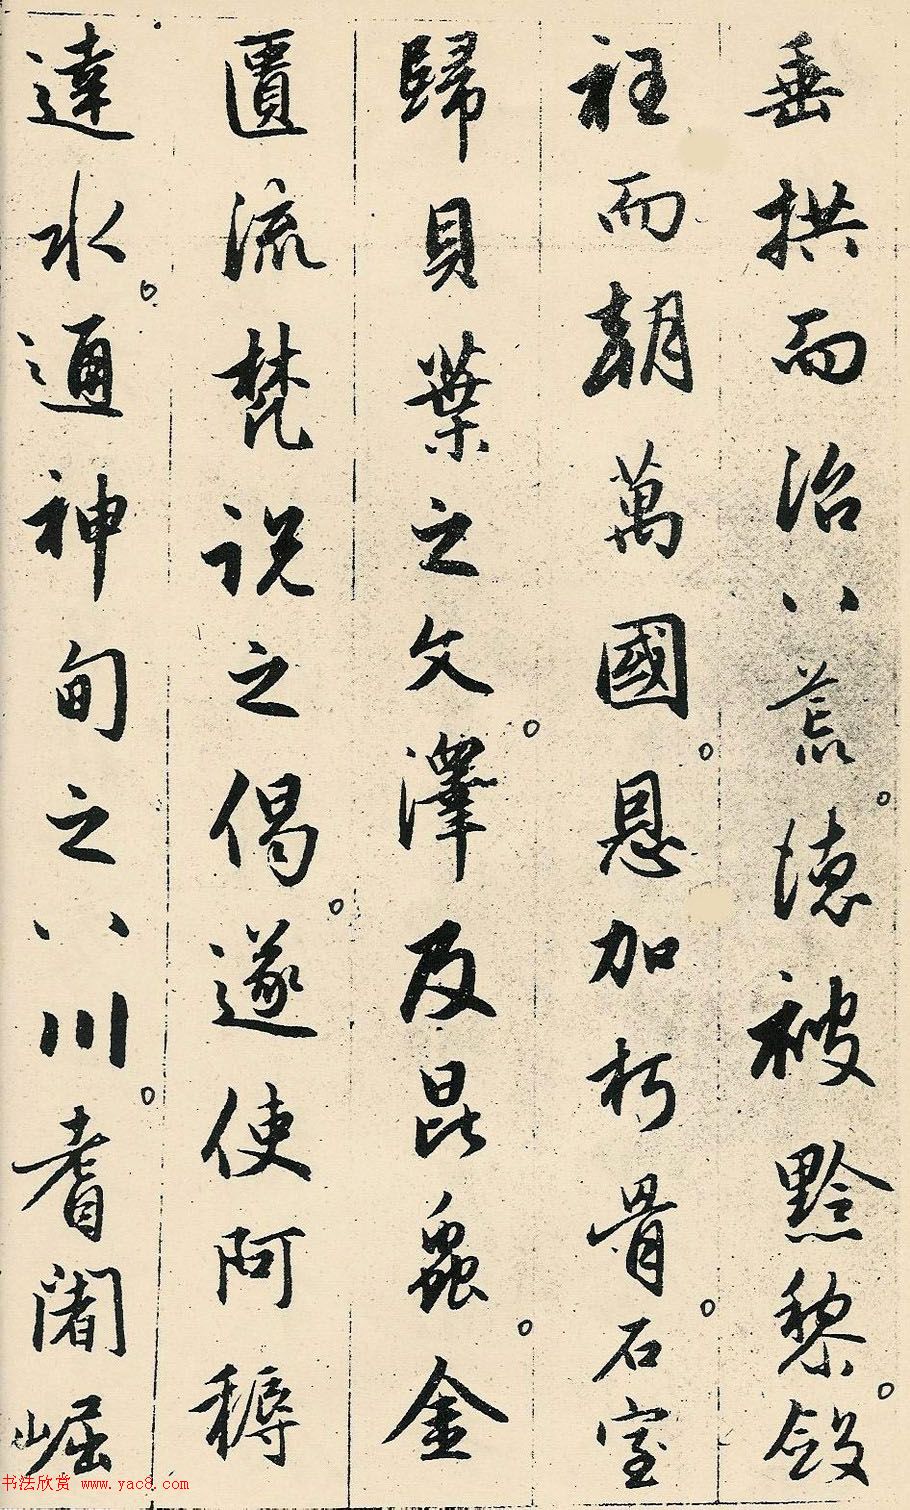 垂拱而治八荒。德被黔黎。斂
衽而朝萬國。恩加朽骨。石室
歸貝葉之文。澤及昆蟲。金
匱流梵說之偈。遂使阿耨
達水。通神甸之八川。耆闍崛
书法欣赏 www.yac8.com